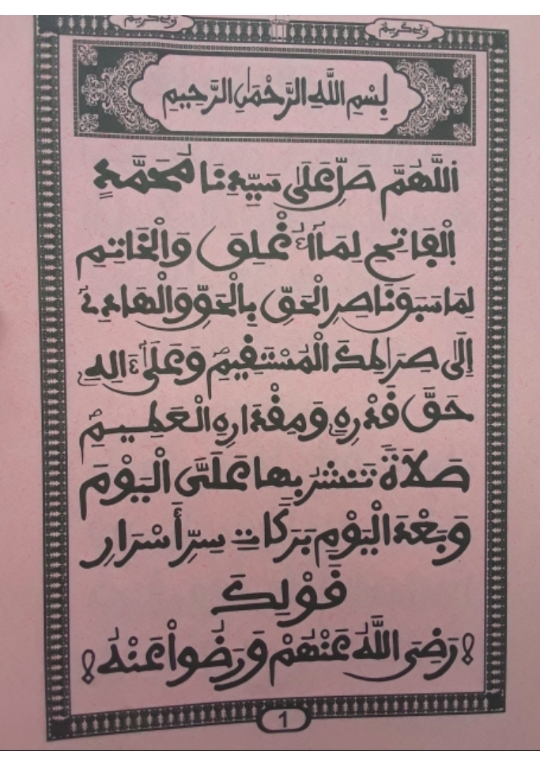 بِسْمِ اللَّهِ الرَّحْمَٰنِ الرَّحِيمِ
اللَّهُمَّ صَلِّ عَلَى سَيِّدِنَا مُحَمَّدٍ
الْفَاتِحِ لِمَا أُغْلِقَ وَالْخَاتِمِ
لِمَا سَبَقَ نَاصِرِ الْحَقِّ بِالْحَقِّ وَالْهَادِي
إِلَى صِرَاطِكَ الْمُسْتَقِيمِ وَعَلَىٰ ءَالِهِ
حَقَّ قَدْرِهِ وَمِقْدَارِهِ الْعَظِيمِ
صَلَاةً تَنْشُرُ بِهَا عَلَيَّ الْيَوْمَ
وَبَعْدَ الْيَوْمِ بَرَكَاتِ سِرِّ أَسْرَارِ
قَوْلِكَ
رَضِيَ اللَّهُ عَنْهُمْ وَرَضُواْ عَنْهُ
1